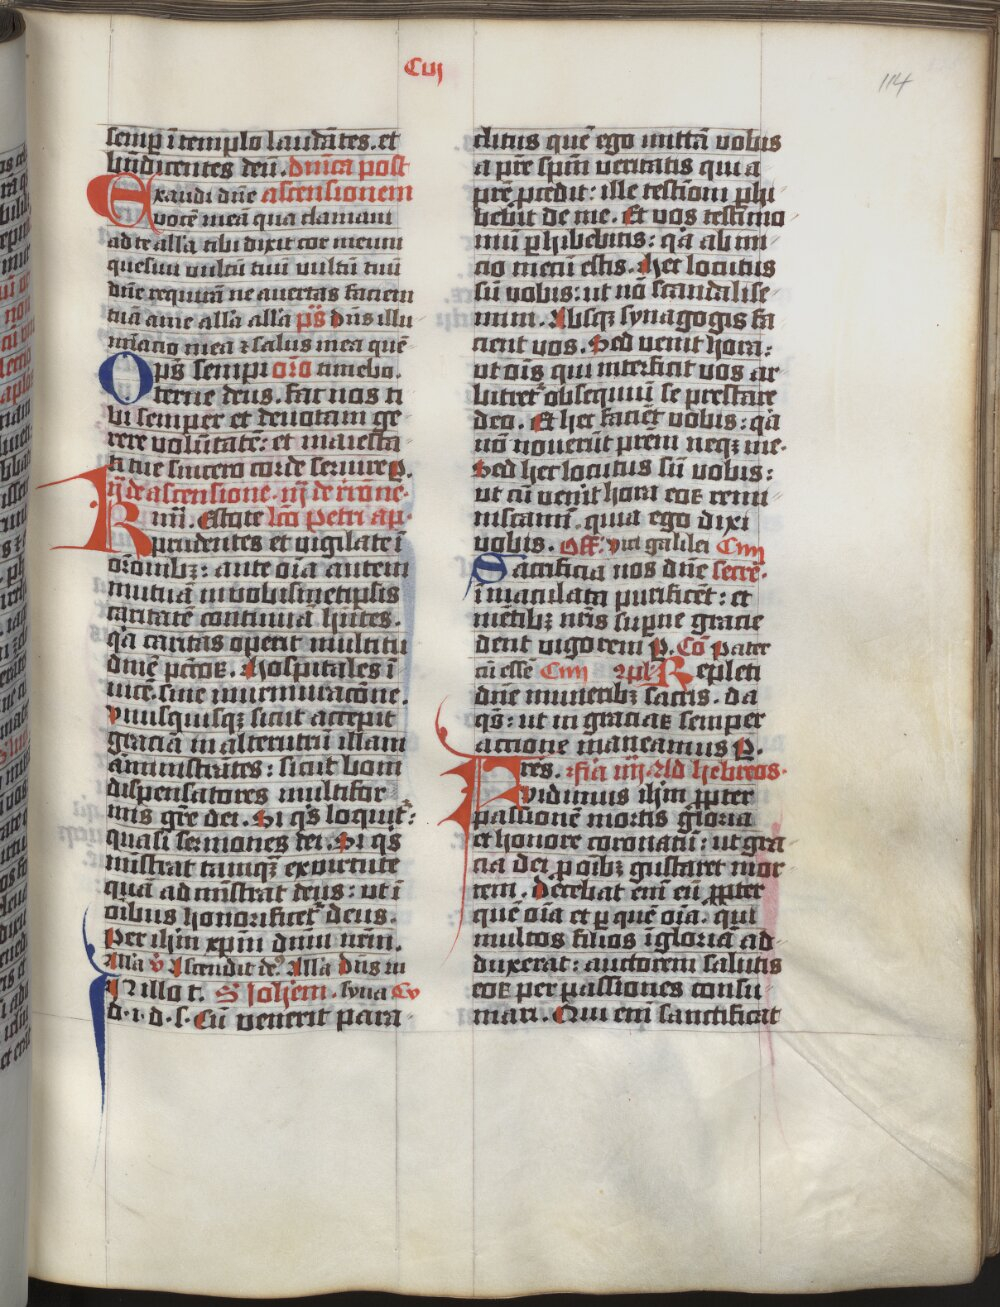 Cvij
114
semꝑ ī templo laudātes. et
bn̄dicentes deū. dn̄ica post
Exaudi dn̄e ascensionem
vocē meā qua clamaui
ad te all'a tibi dixit cor meum
quesiui vultū tuū vultū tuū
dn̄e requirā ne auertas faciem
tuā a me all'a all'a p̄s dn̄s illu
mīatio mea ⁊ salus mea quē
Op̄s sempi or̄o timebo.
terne deus. fac nos ti
bi semper et deuotam ge
rere volūtatē: et maiesta
ti tue sincero corde seruire P.
Ij de ascensione. iij de
mi. Estote lc̄o petri ap.
prudentes et vigilate ī
or̄onibꝫ: ante oīa autem
mutuā in vobismetipsis
caritatē continuā hn̄tes.
q̄a caritas operit multitu
dinē pctoꝝ. Hospitales ī
uicē. sine murmurac̄one.
Vnusquisqꝫ sicut accepit
gracia in alterutrū illam
ām̄inistrātes: sicut boni
dispensatores multifor
mis gr̄e dei. Si q̄s loquit͛:
quasi sermones dei. Si q̄s
mīstrat tamqꝫ ex virtute
quā ad mīstrat deus: vt ī
oībus honorificet͛ deus.
Per ihm̄ xpm̄ dnm̄ nrm̄.
All'a v̄ Ascendit deꝰ. All'a dn̄s in
In illo t. S Johem. syna Cv
d. i. d. s. Cū venerit para
clitus quē ego mittā vobis
a pr̄e spm̄ veritatis qui a
pr̄e ꝓcedit: ille testīoni ꝑhi
bebit de me. Et vos testīmo
niū ꝑhibebitis: q̄a ab ini
cio mecū estis. Hec locutus
sū vobis: ut nō scandalise
mini. Absqꝫ synagogis fa
cient vos. Sed uenit hora:
ut oīs qui interficit vos ar
bitret͛ obsequiū se prestare
deo. Et hec faciēt vobis: q̄a
nō nouerūt prem̄ neqꝫ me.
Sed hec locutus sū vobis:
ut cū uenit hora eoꝝ remi
niscamī. quia ego dixi
vobis. Off. viri galilei Ciiij
Sacrificia nos dn̄e secrē.
īmaculata purificēt: et
mētibꝫ nr̄is supne gracie
dent vigorem P. Cō Pater
cū essē Ciiij 2pl Repleti
dn̄e muneribꝫ sacris. da
q̄s: ut in graciaꝝ semper
actione maneamus P.
res. fīa iiij. Ad hebreos.
Fvidimus ihm̄ ꝓpter
passionē mortis gloria
et honore coronatū: ut gra
cia dei ꝓ oībꝫ gustaret mor
tem. Decebat em̄ eū ꝓpter
quē oīa et ꝑ quē oīa. qui
multos filios ī gloriā ad
duxerat: auctorem salutis
eoꝝ per passiones consu
mari. Qui em̄ sanctificat